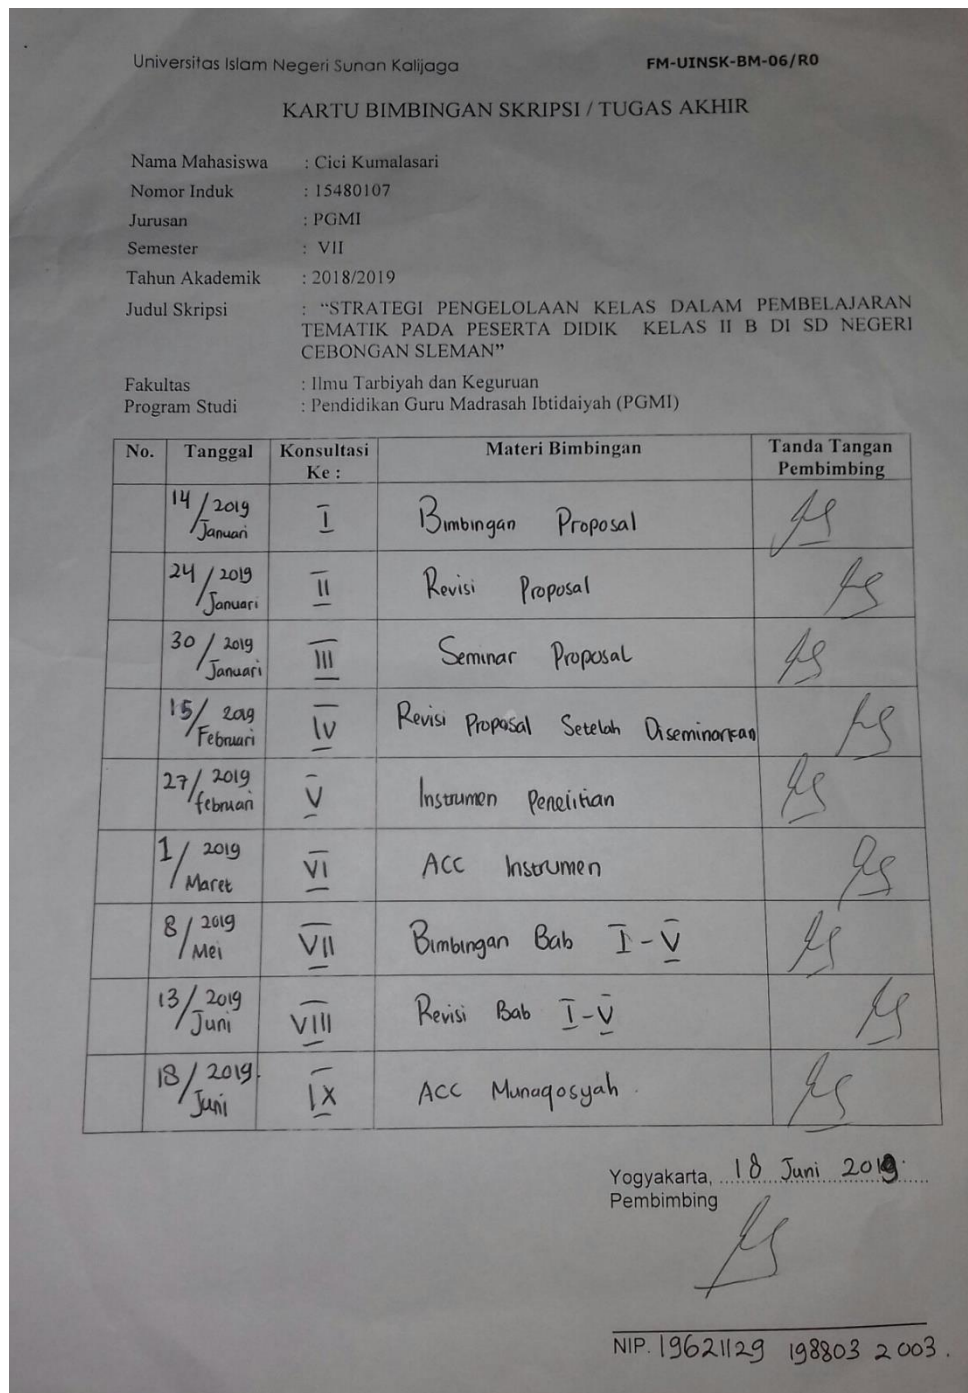 Universitas Islam Negeri Sunan Kalijaga FM-UINSK-BM-06/R0
KARTU BIMBINGAN SKRIPSI / TUGAS AKHIR
Nama Mahasiswa : Cici Kumalasari
Nomor Induk : 15480107
Jurusan : PGMI
Semester : VII
Tahun Akademik : 2018/2019
Judul Skripsi : “STRATEGI PENGELOLAAN KELAS DALAM PEMBELAJARAN
TEMATIK PADA PESERTA DIDIK KELAS II B DI SD NEGERI
CEBONGAN SLEMAN”
Fakultas : Ilmu Tarbiyah dan Keguruan
Program Studi : Pendidikan Guru Madrasah Ibtidaiyah (PGMI)
No. Tanggal Konsultasi Ke : Materi Bimbingan Tanda Tangan Pembimbing
14/2019 Januari I Bimbingan Proposal
24/2019 Januari II Revisi Proposal
30/2019 Januari III Seminar Proposal
15/2019 Februari IV Revisi Proposal Setelah Diseminarkan
27/2019 februari V Instrumen Penelitian
1/2019 Maret VI ACC Instrumen
8/2019 Mei VII Bimbingan Bab I-V
13/2019 Juni VIII Revisi Bab I-V
18/2019 Juni IX ACC Munaqosyah.
Yogyakarta, 18 Juni 2019.
Pembimbing
NIP. 19621129 198803 2 003.